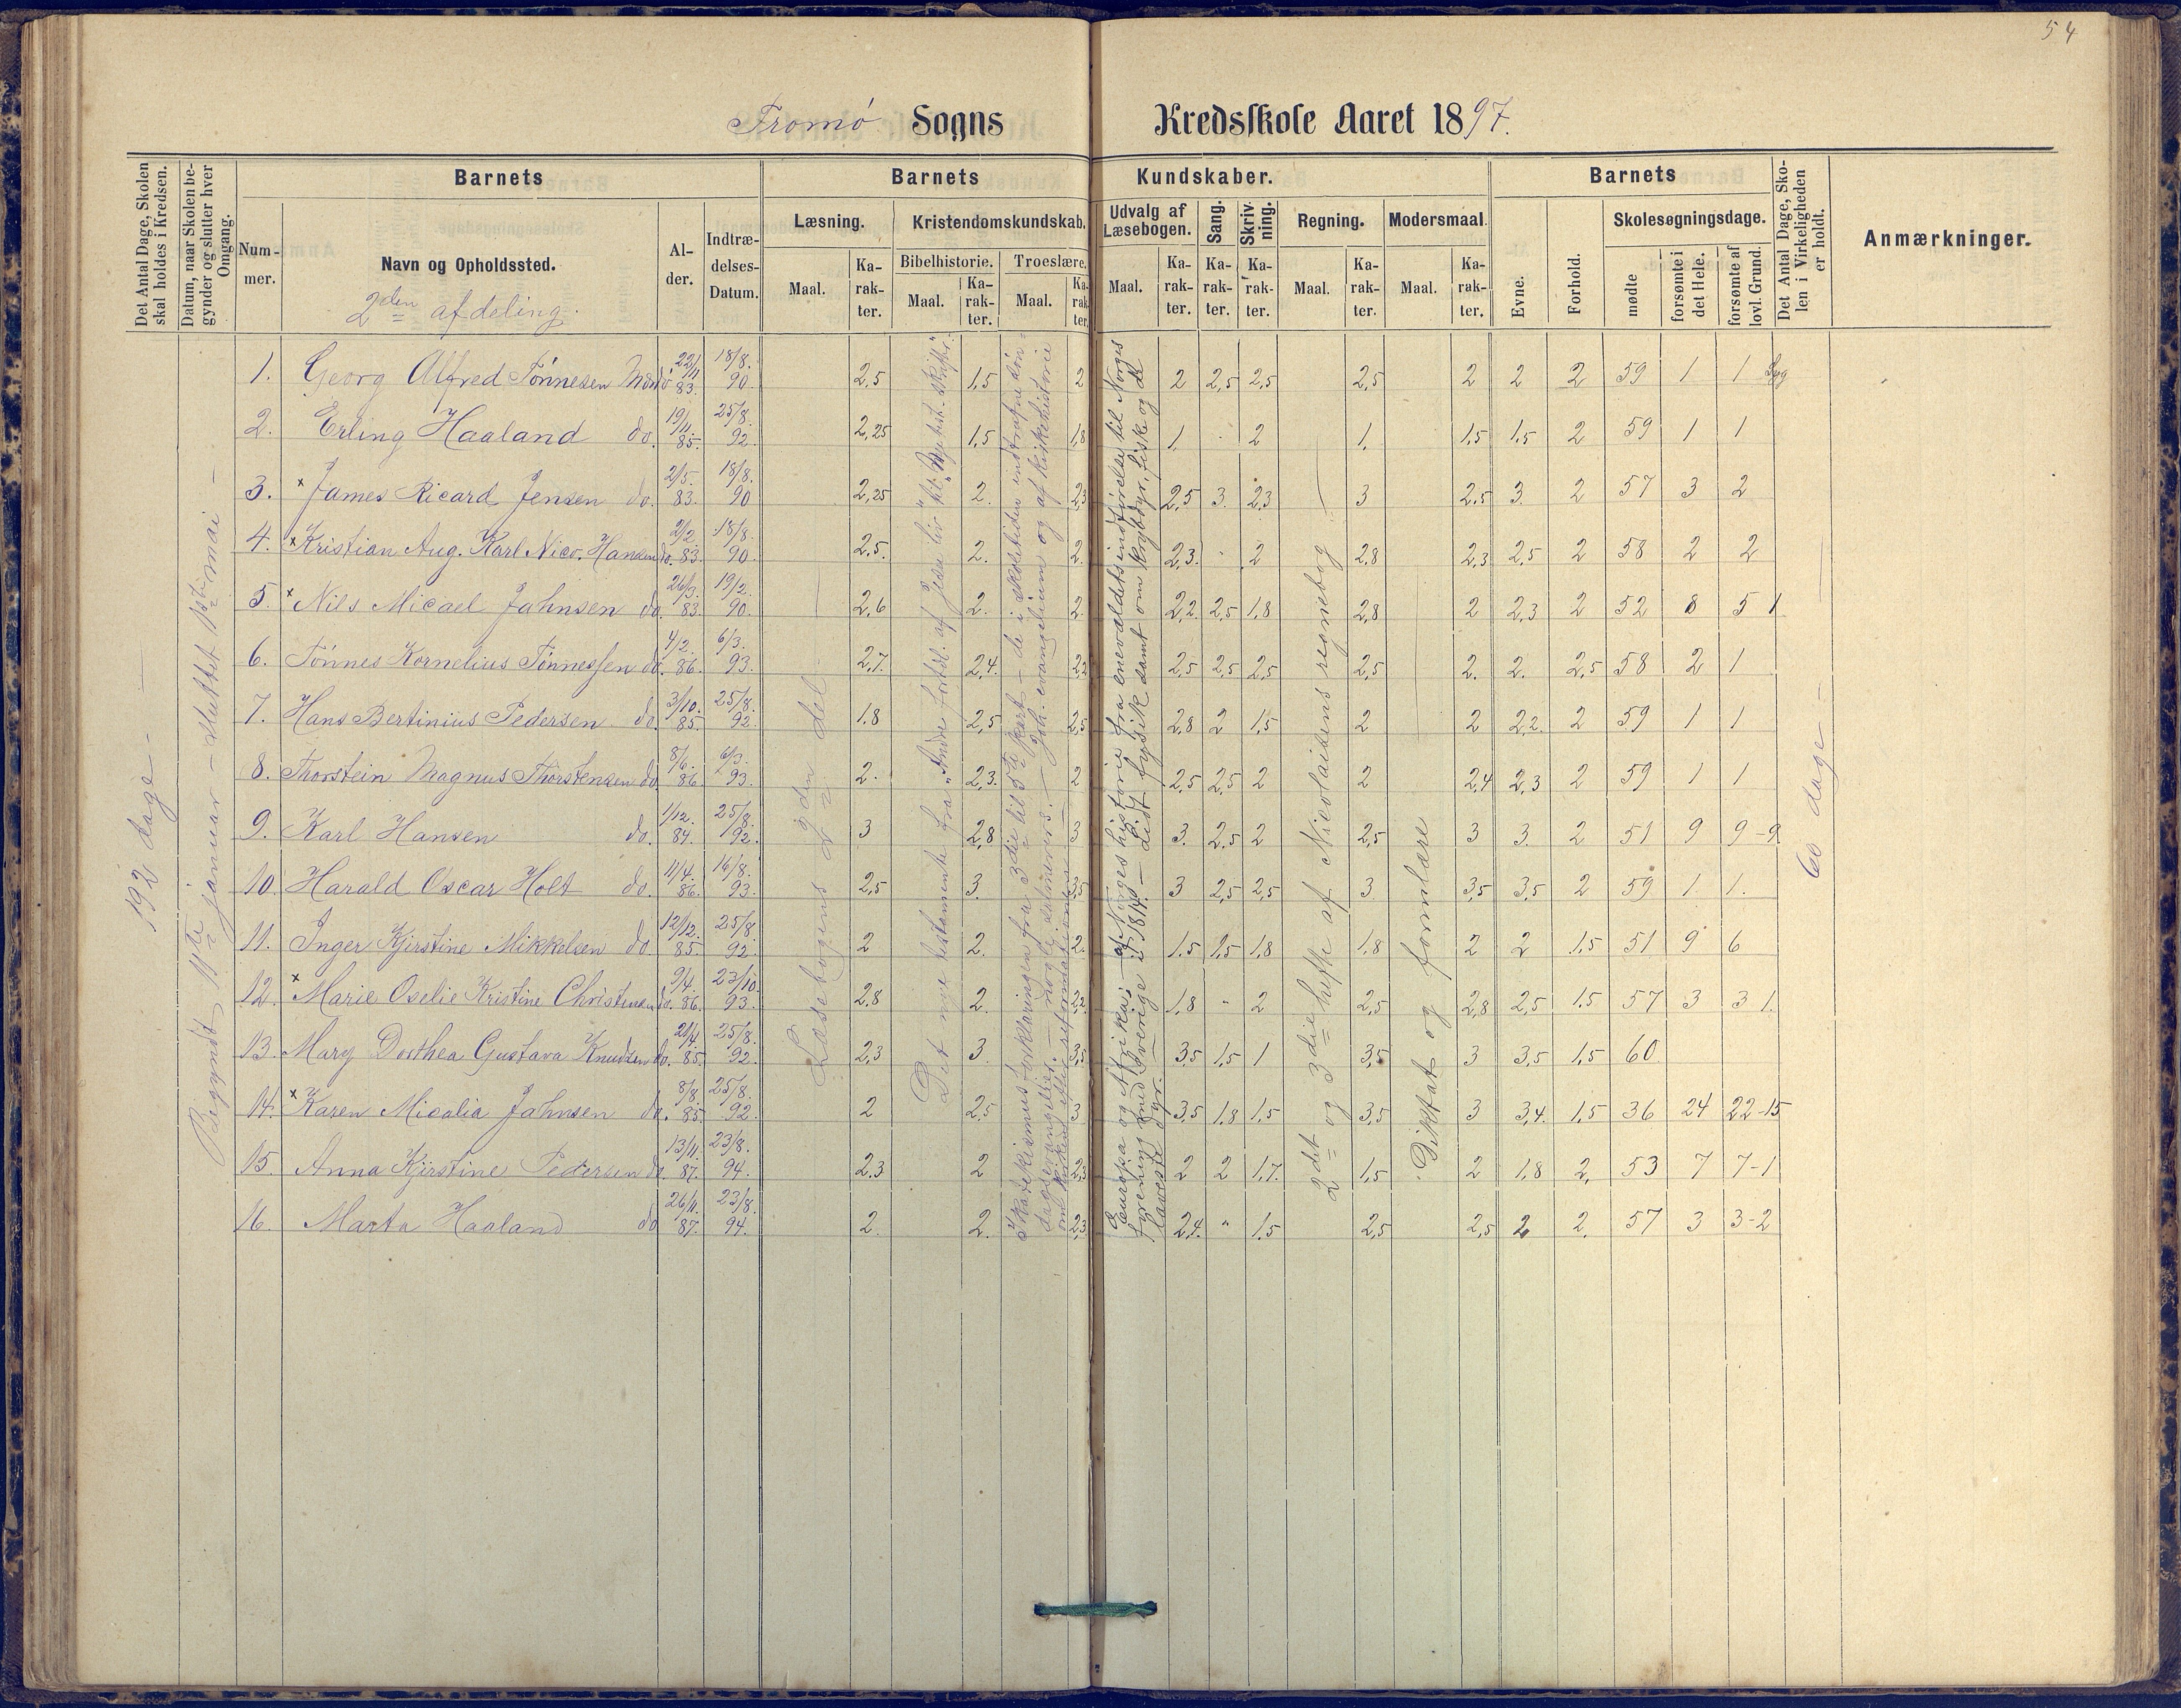 54
Tromø Sogns Kredsskole Aaret 1897.
Det Antal Dage, Skolen skal holdes i Kredsen.
Datum, naar Skolen begynder og slutter hver Omgang.
Barnets
Nummer.
Navn og Opholdssted.
2den afdeling.
Alder.
Indtrædelses-Datum.
Barnets Kundskaber.
Læsning.
Maal. Karakter.
Kristendomskundskab.
Bibelhistorie. Maal. Karakter.
Troeslære. Maal. Karakter.
Udvalg af Læsebogen. Maal. Karakter.
Sang. Karakter.
Skrivning. Karakter.
Regning. Maal. Karakter.
Modersmaal. Maal. Karakter.
Barnets
Evne.
Forhold.
Skolesøgningsdage.
mødte
forsømte i det Hele.
forsømte af lovl. Grund.
Det Antal Dage, Skolen i Virkeligheden er holdt.
Anmærkninger.
192 dage –
Begyndt 11te januar – sluttet 1ste mai –
Læsebogens 2den del
Det nye testamente fra "Andre fortæl. af Jesu liv" til
Katekismus forklaringen fra 3die til 5te part – de i skoletiden indtrufne søndagsevangelier
og af kirkehistorie
Europa og Afrika; – af Norges historie fra eneveldets indførelse til Norges forening med Sverige i 1814. – Lidt fysik samt om krybdyr, fiske og de laveste dyr.
2det og 3die hefte af Nicolaisens regnebog –
Diktat og formlære
60 dage –
1. Georg Alfred Tønnesen 22/11 83. 18/8. 90. 2,5 1,5 2 2 2,5 2,5 2,5 2 2 2 59 1 1 Syg
2. Erling Haaland do. 19/11 85. 25/8. 92. 2,25 1,5 1,8 1 2 1. 1,5 1,5 2 59 1 1
3. x James Ricard Jensen do. 2/5. 83. 18/8. 90 2,25 2. 2,3 2,5 3. 2,3 3 2,5 3. 2 57 3 2
4. x Kristian Aug. Karl Nico. Hansen do. 2/2. 83. 18/8. 90. 2,5. 2. 2. 2,3. 2 2,8 2,3 2,5 2 58 2 2
5. x Nils Micael Jahnsen do. 26/3. 83. 19/2. 90. 2,6 2. 2. 2,2 2,5 1,8 2,8 2 2,3 2 52 8 5 1
6. Tønnes Kornelius Tønnessen do. 4/2. 86. 6/3. 93. 2,7. 2,4. 2,2 2,5 2,5 2,5 2,5 2. 2. 2,5 58 2 1
7. Hans Bertinius Pedersen do. 3/10. 85 25/8. 92. 1,8 2,5 2,5 2,8 2 1,5 2 2 2,2. 2 59 1 1
8. Thorstein Magnus Thorstensen do. 8/6. 86 6/3. 93. 2. 2,3. 2 2,5 2,5 2 2 2,4 2,3 2 59 1 1
9. Karl Hansen do. 1/12. 84. 25/8. 92. 3 2,8 3 3. 2,5 2 2,5 3 3. 2 51 9 9-9
10. Harald Oscar Holt do. 11/4. 86. 16/8. 93. 2,5 3. 3,5 3 2,5 2,5 3 3,5 3,5 2 59 1. 1.
11. Inger Kjirstine Mikkelsen do. 12/12. 85. 25/8. 92. 2 2. 2. 1,5 1,5 1,8 1,8 2 2 1,5 51 9 6
12. x Marie Oselie Kristine Christensen do. 9/4. 86. 23/10. 93. 2,8 2. 2,2 1,8 " 2 2,5 2,8 2,5 1,5 57 3 3 1.
13. Mary Dorthea Gustava Knudsen do. 21/4. 85. 25/8. 92. 2,3 3. 3,5 3,5 1,5 1 3,5 3 3,5 1,5 60
14. x Karen Micalia Jahnsen do. 8/8. 85. 25/8. 92. 2 2,5 3 3,5 1,8 1,5 3,5 3 3,4. 1,5 36 24 22-15
15. Anna Kjirstine Pedersen do. 13/11. 87. 23/8. 94. 2,3 2 2,3 2 2 1,7. 1,5 2 1,8 2. 53 7 7-1
16. Marta Haaland do 26/11. 87. 23/8. 94. 2. 2. 2,3 2,4. " 1,5 2,5 2,5 2 2. 57 3 3-2